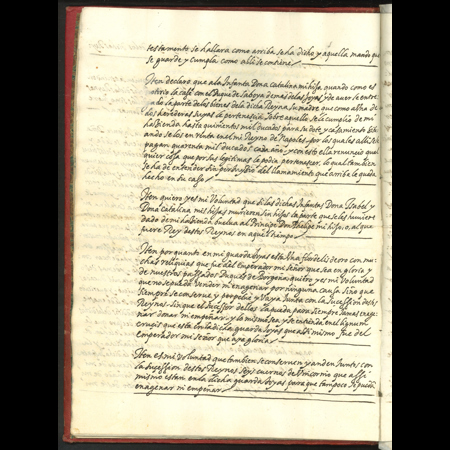 testamento se hallara como arriba se ha dicho y aquella mando que
se guarde y cumpla como alli se contiene
Iten declaro que a la Infanta Doña Catalina mi hija, quando como es
notorio la casé con el Duque de Saboya demas de las Joyas y de aver se
de la parte de los bienes dela dicha Reyna su madre que como a una de
sus herederas suyas le pertenescia, sobre aquello se le cumplio de mi
hazienda hasta quinientos mil ducados para su dote y casamiento
en renta en el mi Reyno de Napoles, por los quales alli se le
pagan quarenta mil ducados cada año, y con esto ella renuncio qual
quier cosa que por sus legitimas le podia pertenescer, lo qual tambien
se ha de entender sin perjuyzio del llamamiento que arriba le queda
hecho en su caso
Iten quiero y es mi voluntad que si las dichas Infantas Doña Isabel y
Doña Catalina mis hijas murieren sin hijos la parte que se les huviere
dado de mi hazienda buelva al Principe Don Phelipe mi hijo, o, al que
fuere Rey destos Reynos en aquel tiempo
Iten por quanto en mi guardajoyas esta una flor de lis de oro con mu
chas reliquias que fue del Emperador mi señor que sea en gloria y
de nuestros passados Duques de Borgoña, quiero y es mi voluntad
que no se pueda vender ni enagenar por ninguna causa sino que
siempre se conserve y y vaya junta con la succession destos
Reynos, sin que el successor dellos la pueda para siempre jamas enage
nar donar ni empeñar, y lo mismo sea y se entienda en el lignum
crucis que esta en la dicha guardajoyas que assi mismo fue del
Emperador mi Señor que aya gloria
Iten es mi voluntad que tambien se conserven y anden juntos con
la succession destos Reynos seys cuernos de Unicornio que assi
mismo estan en la dicha guardajoyas para que tampoco se puedan
enagenar ni empeñar